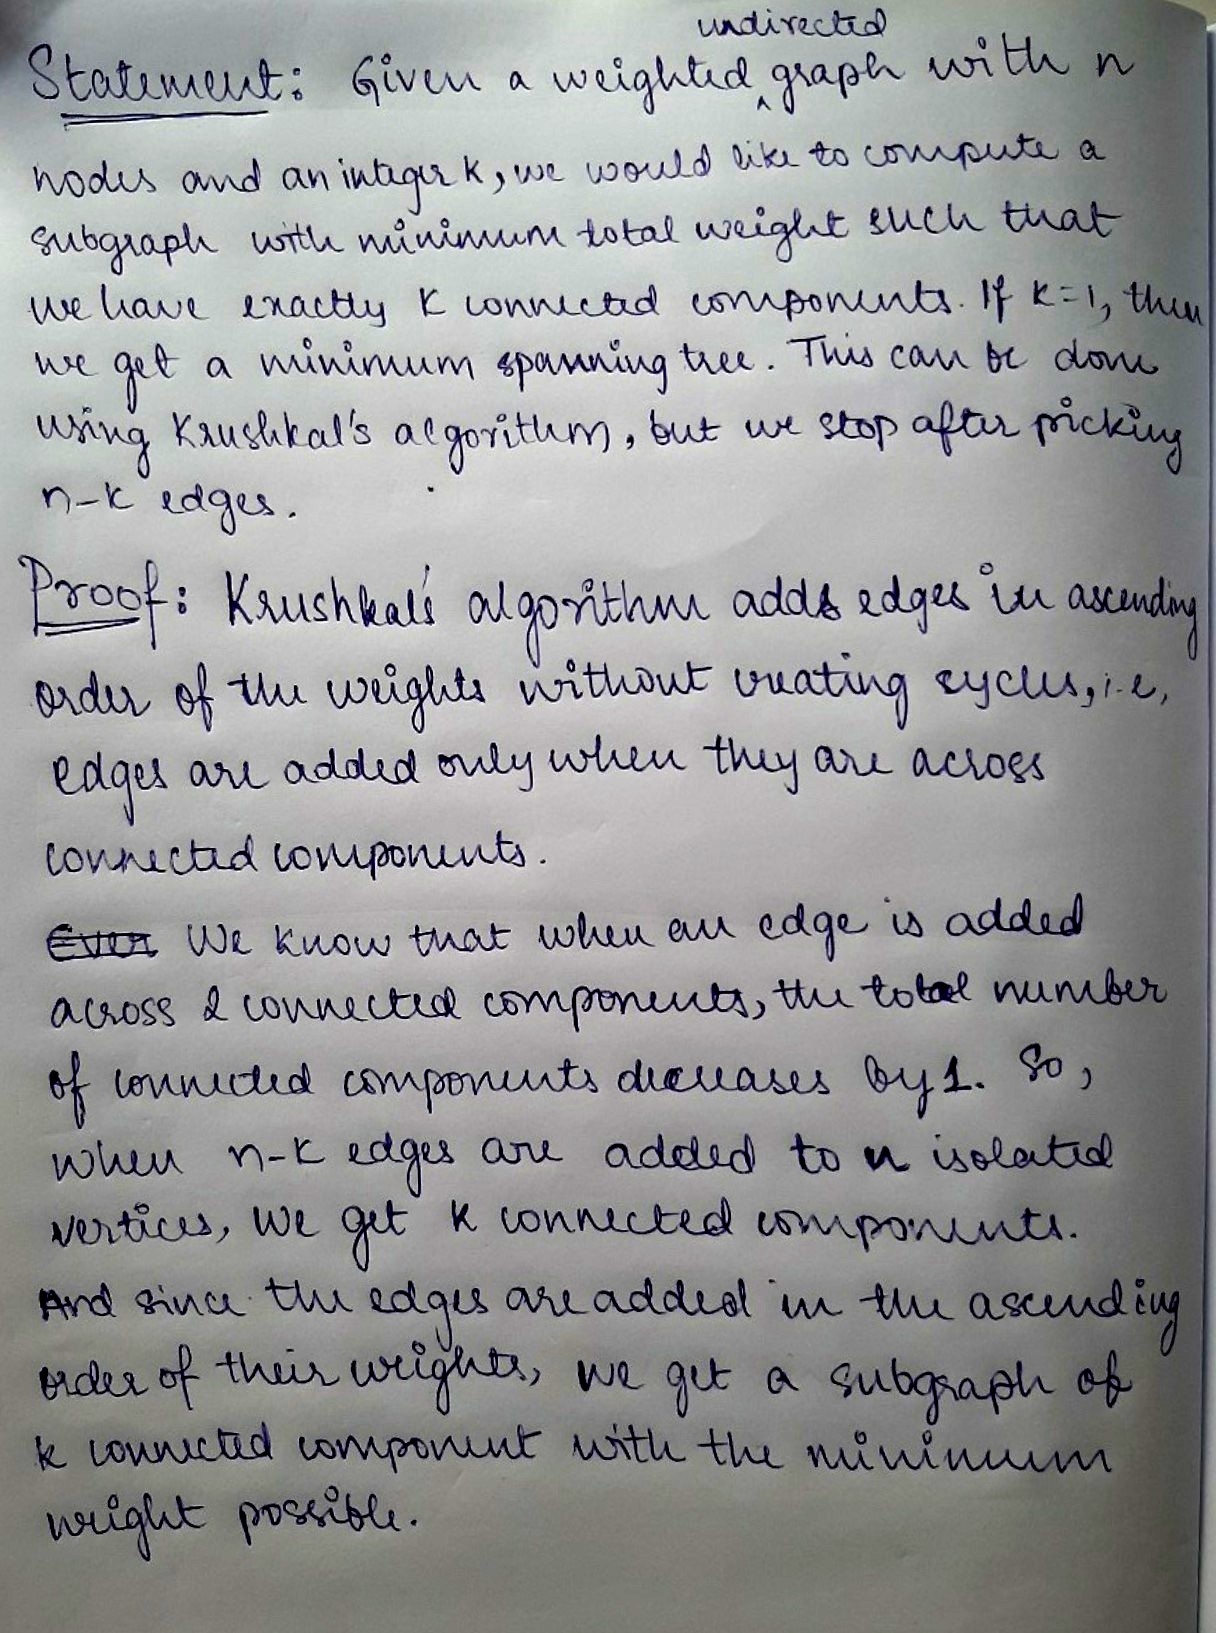 undirected
Statement: Given a weighted ^ graph with n
nodes and an integer k, we would like to compute a
subgraph with minimum total weight such that
we have exactly k connected components. If k=1, then
we get a minimum spanning tree. This can be done
using Krushkal's algorithm, but we stop after picking
n-k edges.
Proof: Krushkal's algorithm adds edges in ascending
order of the weights without creating cycles, i.e,
edges are added only when they are across
connected components.
Ever We know that when an edge is added
across 2 connected components, the total number
of connected components decreases by 1. So,
when n-k edges are added to n isolated
vertices, we get k connected components.
And since the edges are added in the ascending
order of their weights, we get a subgraph of
k connected component with the minimum
weight possible.